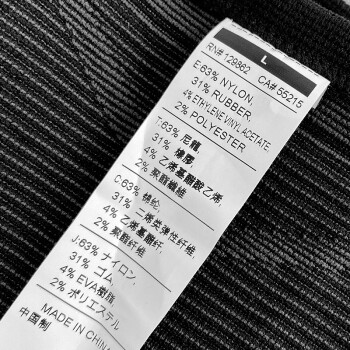 L
RN# 129862 CA# 55215
E:63% NYLON,
31% RUBBER
4% ETHYLENE VINYL ACETATE,
2% POLYESTER
T:63% 尼龍,
31% 橡膠,
4% 乙烯基醋酸乙烯
2% 聚酯纖維
C:63% 锦纶,
31% 二烯类弹性纤维
4% 乙烯基醋纤,
2% 聚酯纤维
J:63% ナイロン,
31% ゴム,
4% EVA樹脂,
2% ポリエステル
MADE IN CHINA
中国制